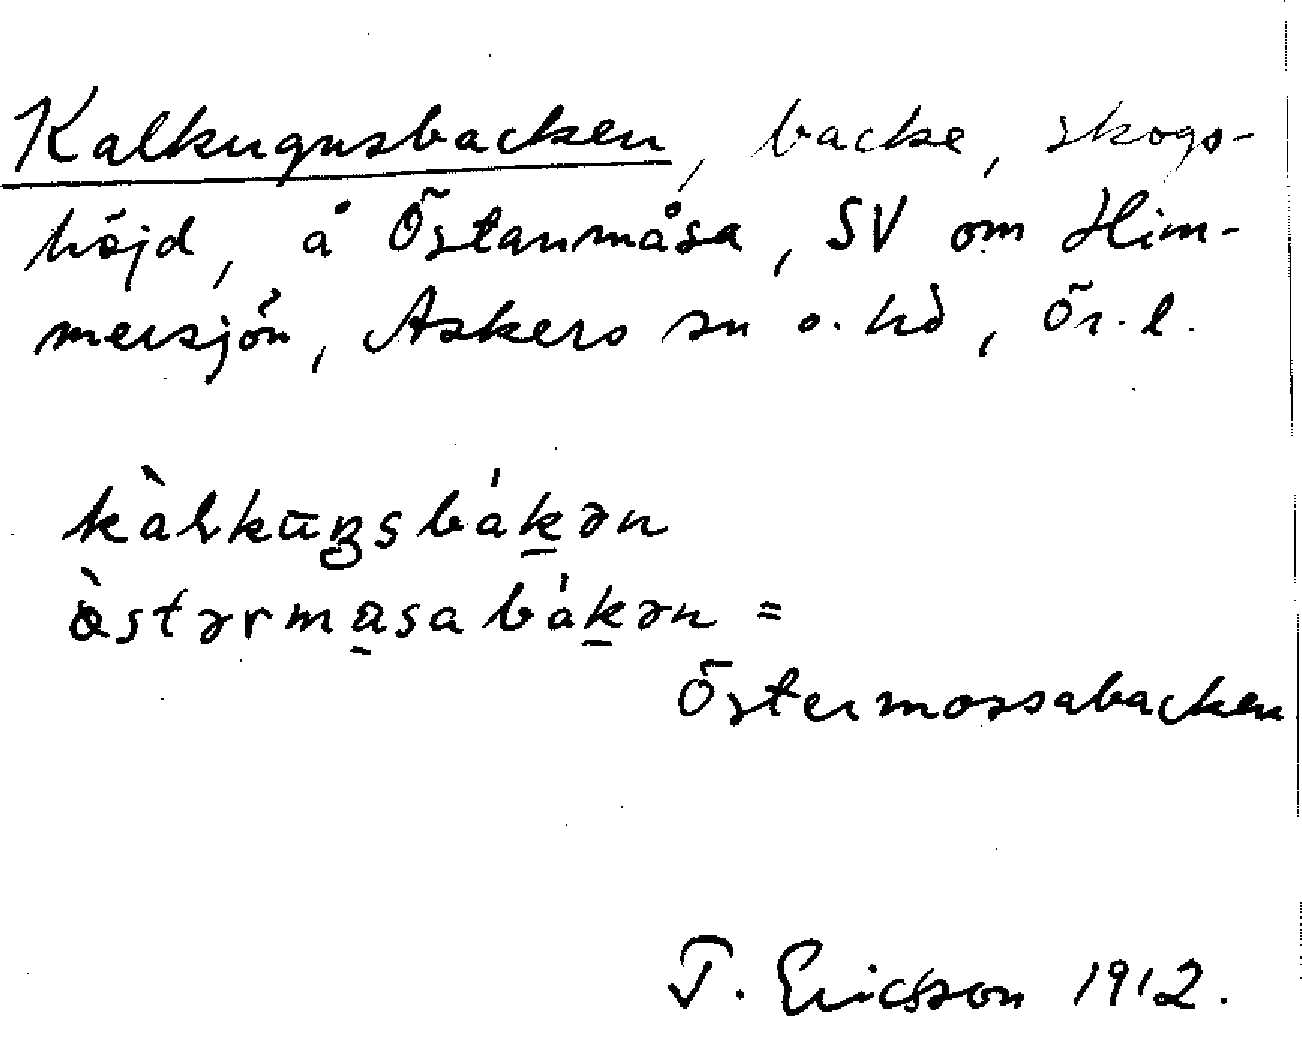 Kalkugnsbacken, backe, skogs-
höjd, å Östanmåsa, SV om Him-
mersjön, Askers sn o. hd, Ör. l.
kàlkūŋsbákən
østərmasabákən =
Östermossabacken
T. Ericsson 1912.